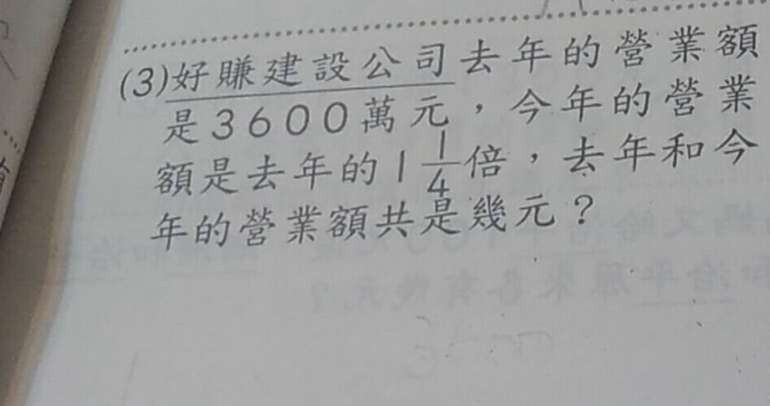 (3)好賺建設公司去年的營業額
是3600萬元，今年的營業
額是去年的1 1/4倍，去年和今
年的營業額共是幾元？